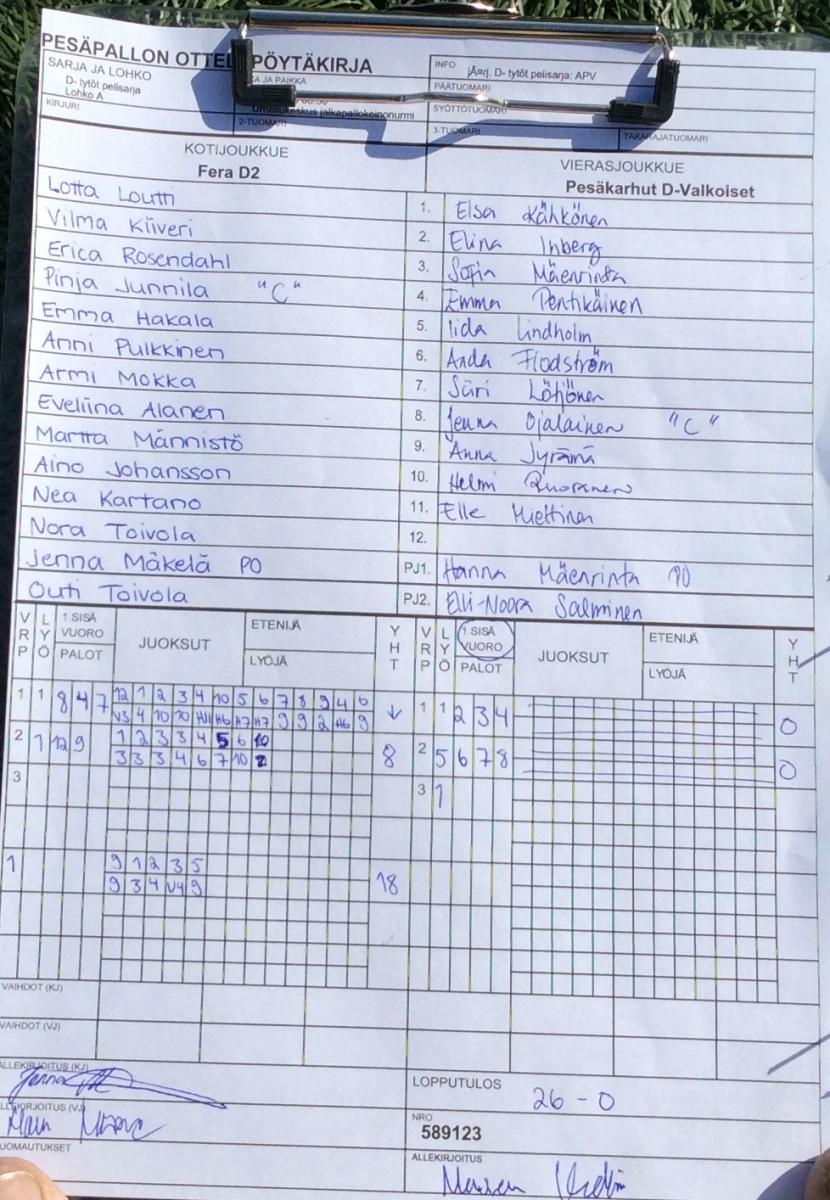 PESÄPALLON OTTEL PÖYTÄKIRJA
SARJA JA LOHKO
D- tytöt pelisarja
Lohko A
KIRJURI
KA JA PAIKKA
Urheilukeskus jalkapallokeinonurmi
2-TUOMARI
INFO jÄrj. D- tytöt pelisarja: APV
PÄÄTUOMARI
SYÖTTÖTUOMARI
3-TUOMARI
TAKARAJATUOMARI
KOTIJOUKKUE
Fera D2
VIERASJOUKKUE
Pesäkarhut D-Valkoiset
Lotta Loutti 1. Elsa Kähkönen
Vilma Kiiveri 2. Elina Inberg
Erica Rosendahl 3. Sofia Mäenrinta
Pinja Junnila "C" 4. Emma Pentikäinen
Emma Hakala 5. Iida Lindholm
Anni Pulkkinen 6. Aada Flodström
Armi Mokka 7. Siiri Löhönen
Eveliina Alanen 8. Jenna Ojalainen "C"
Martta Männistö 9. Anna Jyrämä
Aino Johansson 10. Helmi
Nea Kartano 11. Elle Miettinen
Nora Toivola 12.
Jenna Mäkelä PO PJ1. Hanna Mäenrinta PO
Outi Toivola PJ2. Elli-Noora Salminen
VRP LYÖ 1.SISÄ VUORO PALOT JUOKSUT ETENIJÄ LYÖJÄ YHT VRP LYÖ 1.SISÄ VUORO PALOT JUOKSUT ETENIJÄ LYÖJÄ YHT
1 1 8 4 7 12 1 2 3 4 10 5 6 7 8 9 4 6 ↓ 1 1 2 3 4 0
V3 4 10 10 H11 H6 H7 H7 9 9 2 H6 9
2 1 12 9 1 2 3 3 4 5 6 10 8 2 5 6 7 8 0
3 3 3 4 6 7 10 2
3 3 1
1 9 1 2 3 5 18
9 3 4 V4 9
VAIHDOT (KJ)
VAIHDOT (VJ)
ALLEKIRJOITUS (KJ)
LLEKIRJOITUS (VJ)
UOMAUTUKSET
LOPPUTULOS 26 - 0
NRO
589123
ALLEKIRJOITUS